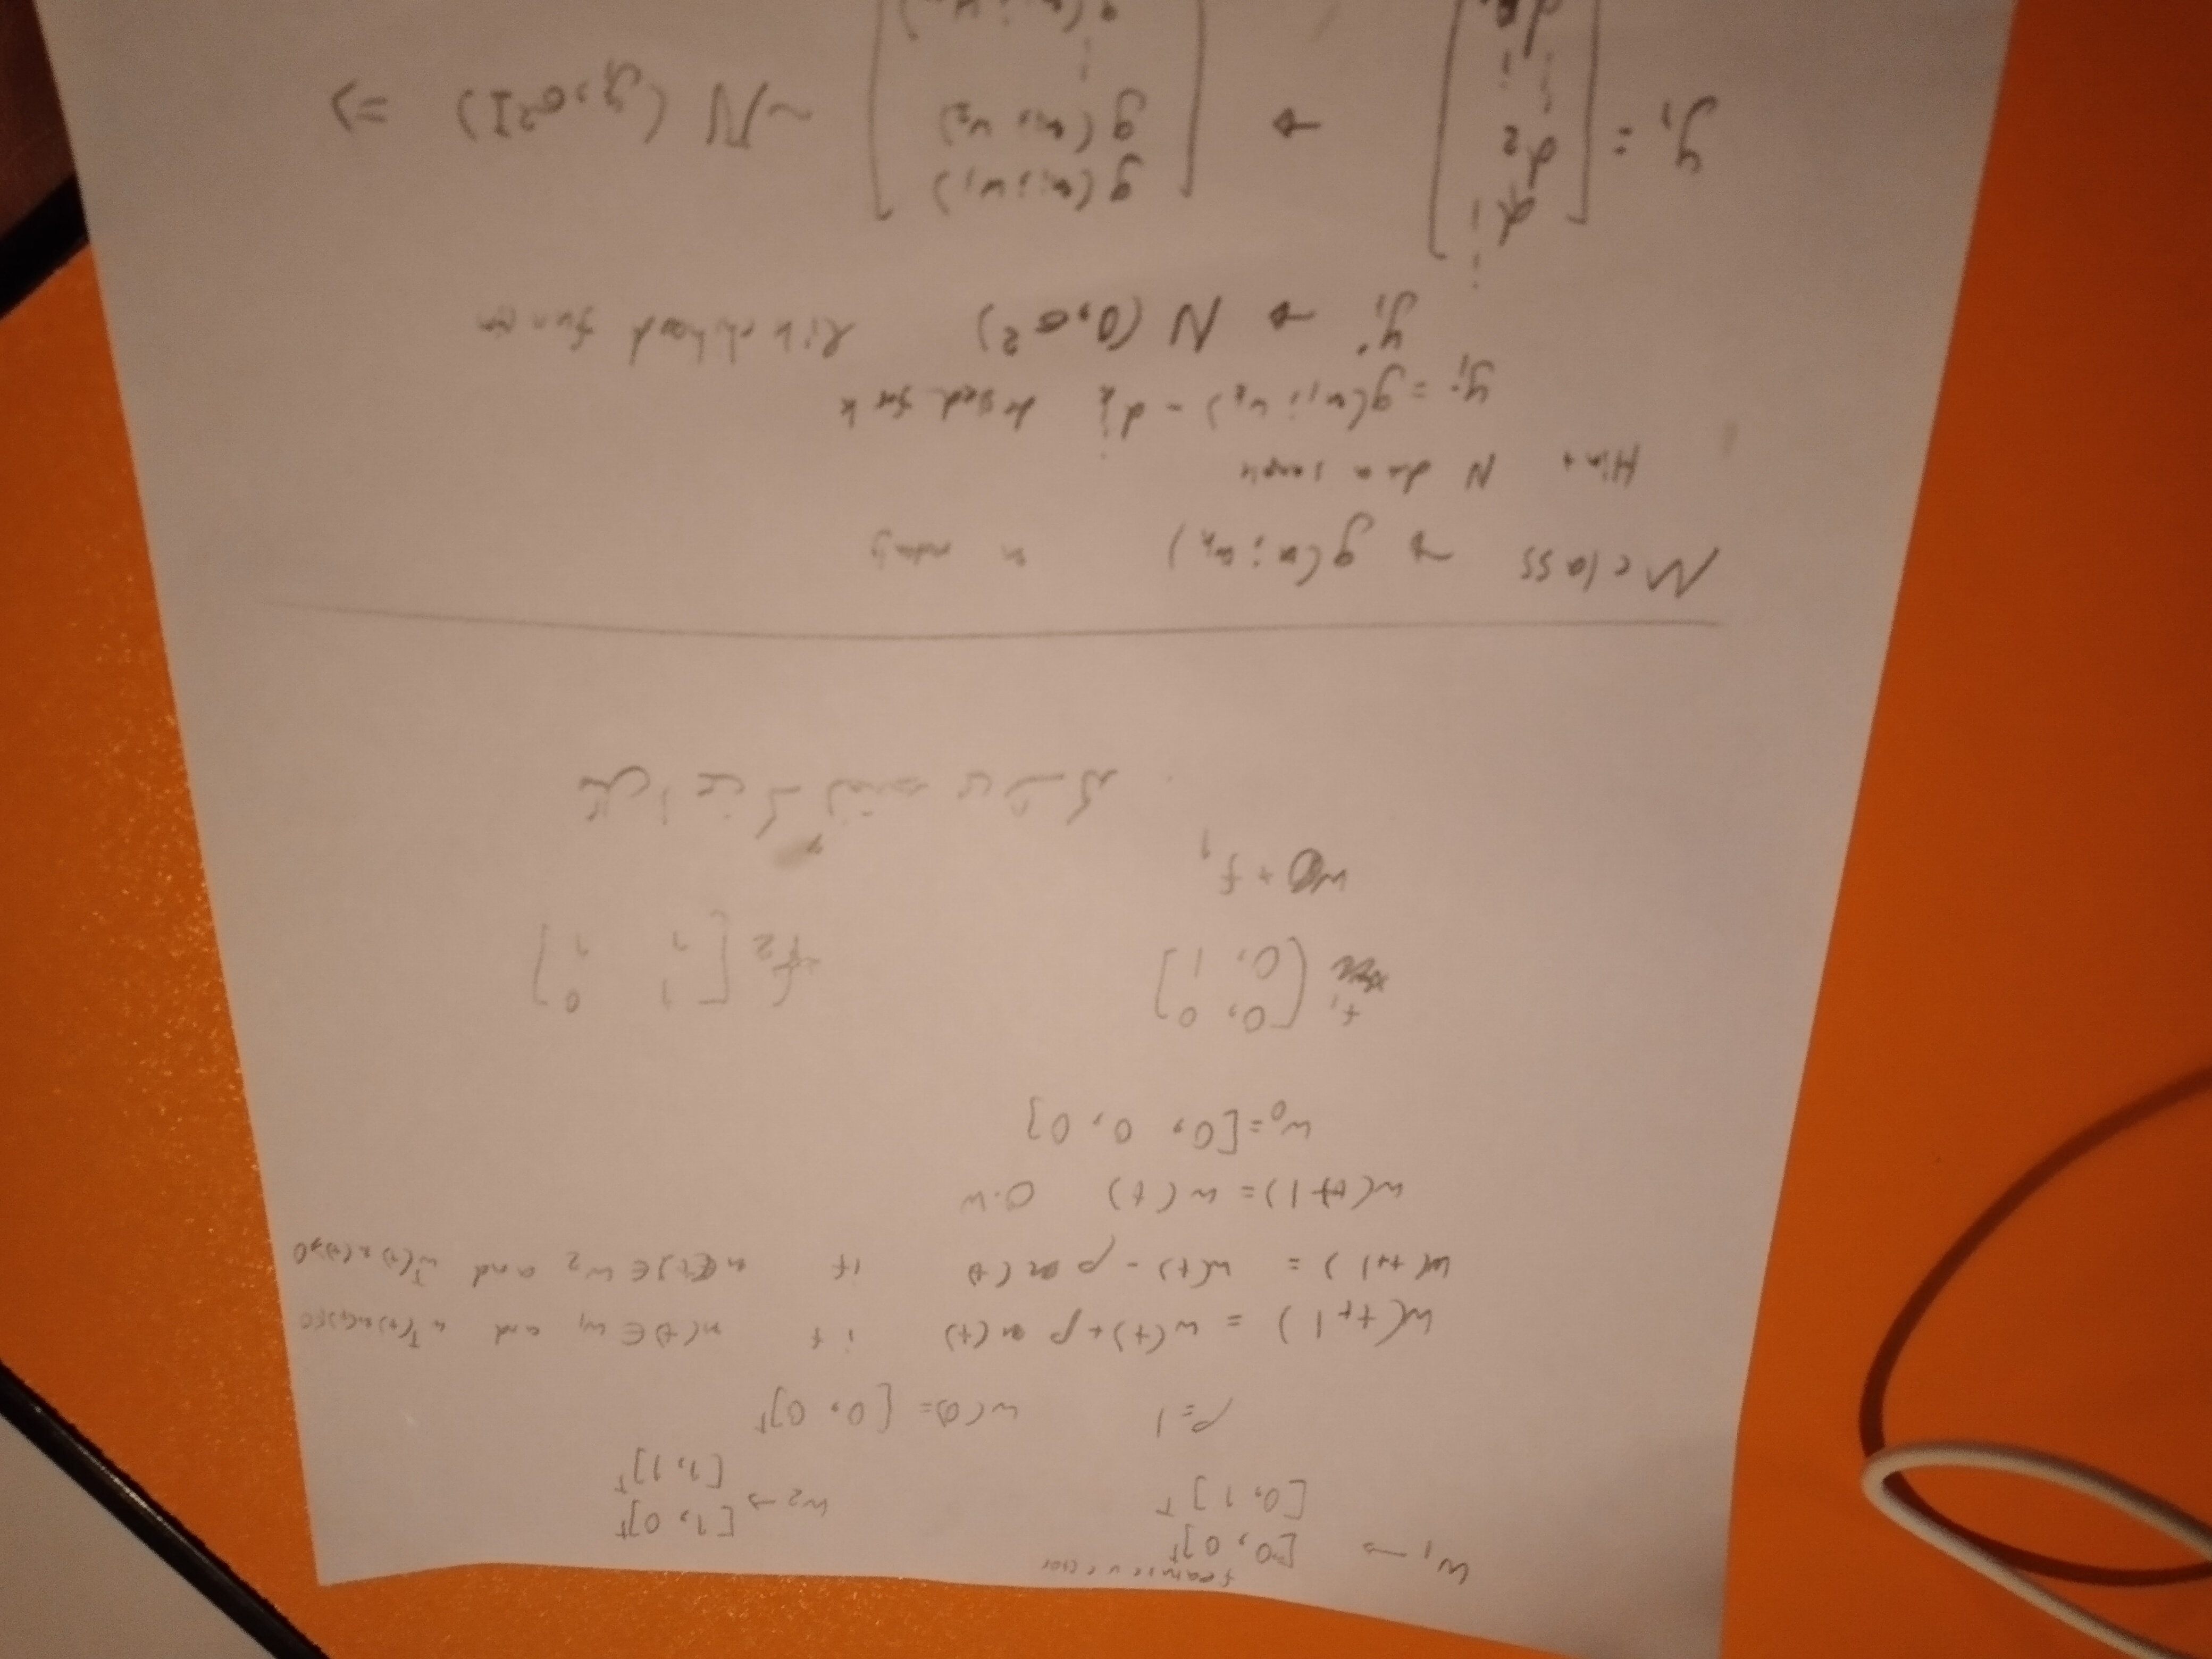 feature vector
w₁ → [0, 0]ᵀ
[0, 1]ᵀ
w₂ → [1, 0]ᵀ
[1, 1]ᵀ
ρ=1 w(0)= [0, 0]ᵀ
w(t+1) = w(t)+ρ x(t) if x(t) ∈ w₁ and wᵀ(t)x(t)≤0
w(t+1) = w(t) - ρ x(t) if x(t) ∈ w₂ and wᵀ(t)x(t)≥0
w(t+1) = w(t) O.W
w₀=[0, 0, 0]
f₁ [0, 0
0, 1]
f₂ [1 0
1 1]
w0 + f₁
مثل این که نقشه ی
M class → g(x; wₖ)
Hint N data sample
yᵢ = g(xᵢ; wₖ) - dₖⁱ desired for k
yᵢ → N (0, σ²) likelihood function
y₁ = [d₁ⁱ
d₂
⋮
→ [g(xᵢ; w₁)
g(xᵢ, w₂)
⋮
~N (yᵢ, σ²I) ⇒